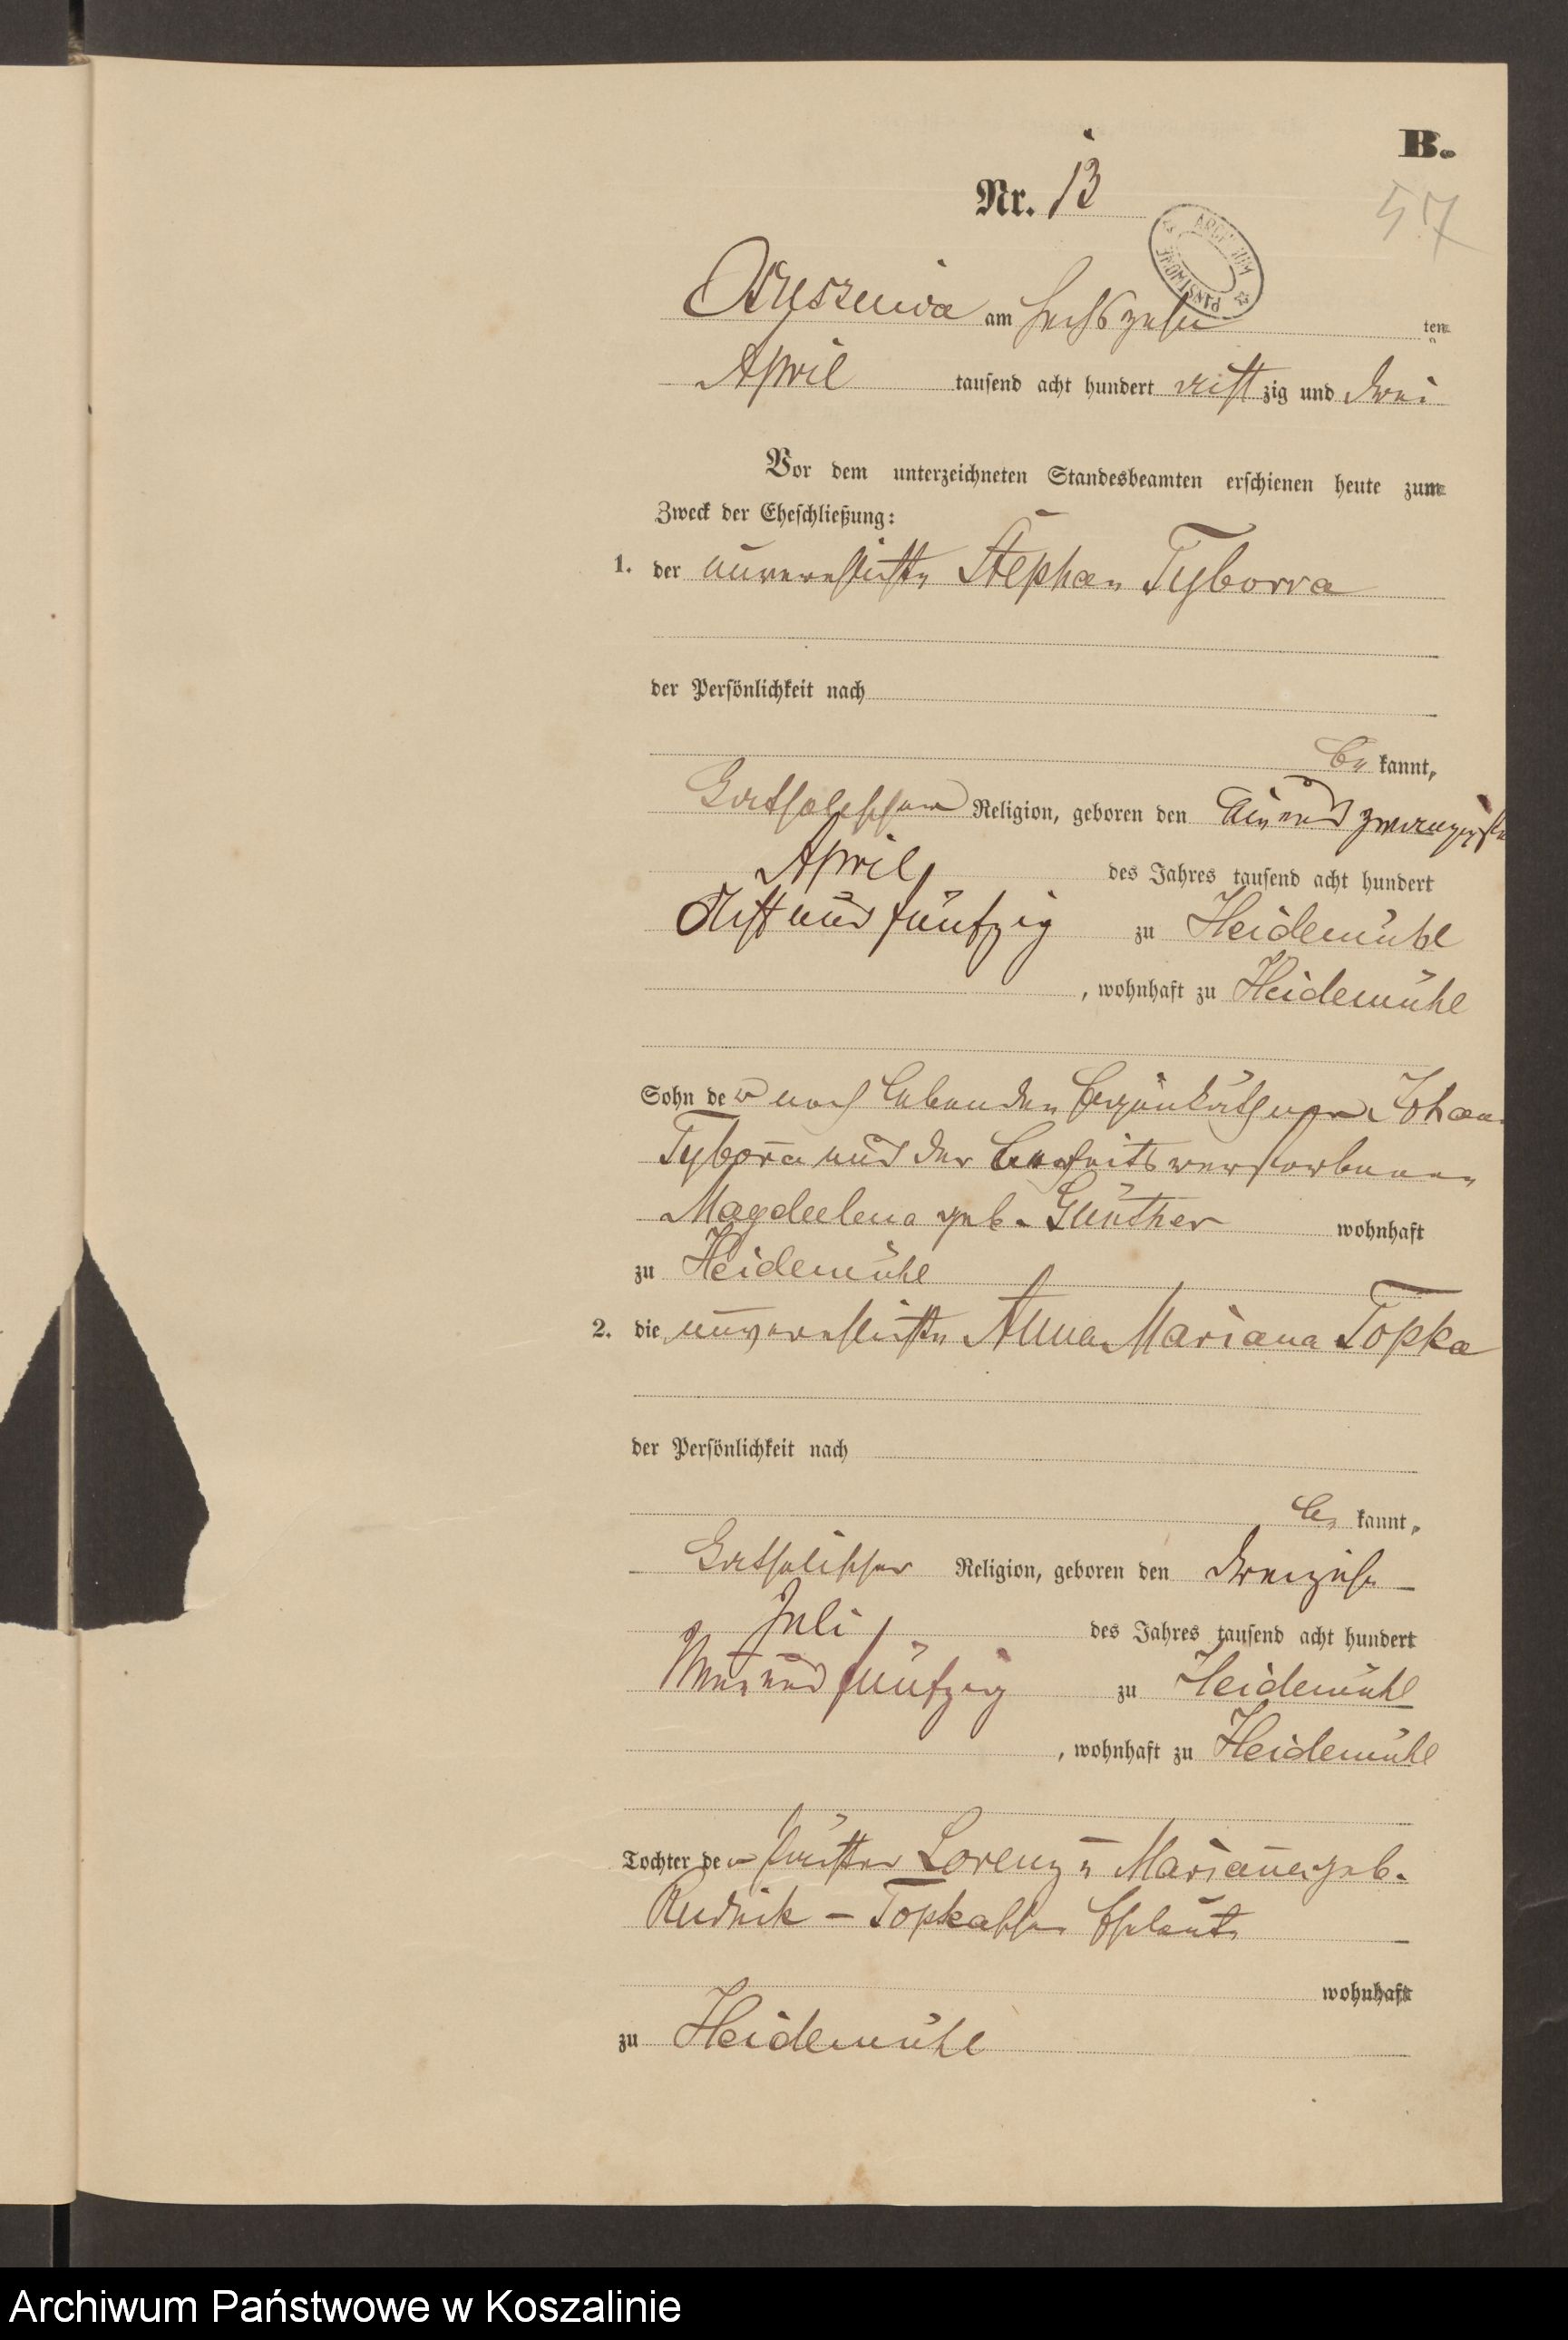 B.
Nr. 13
57
ARCHIWUM PAŃSTWOWE
am sechszehn ten
April tausend acht hundert acht zig und drei
Vor dem unterzeichneten Standesbeamten erschienen heute zum
Zweck der Eheschließung:
1. der unverehlichte Stephan Tyborra
der Persönlichkeit nach
be kannt,
Katholischer Religion, geboren den Ein und zwanzigsten
April des Jahres tausend acht hundert
Acht und fünfzig zu Heidemühl
, wohnhaft zu Heidemühl
Sohn des noch lebenden Johan
Tyborra und der bereits verstorbenen
Magdelena geb. Günther wohnhaft
zu Heidemühl
2. die unverehlichte Anna Mariana Topka
der Persönlichkeit nach
be kannt,
Katholischer Religion, geboren den dreizehn
Juli des Jahres tausend acht hundert
Neun und fünfzig zu Heidemühl
, wohnhaft zu Heidemühl
Tochter der Lorenz u Marianna geb.
Rudnik – Topkaschen Eheleute
wohnhaft
zu Heidemühl
Archiwum Państwowe w Koszalinie